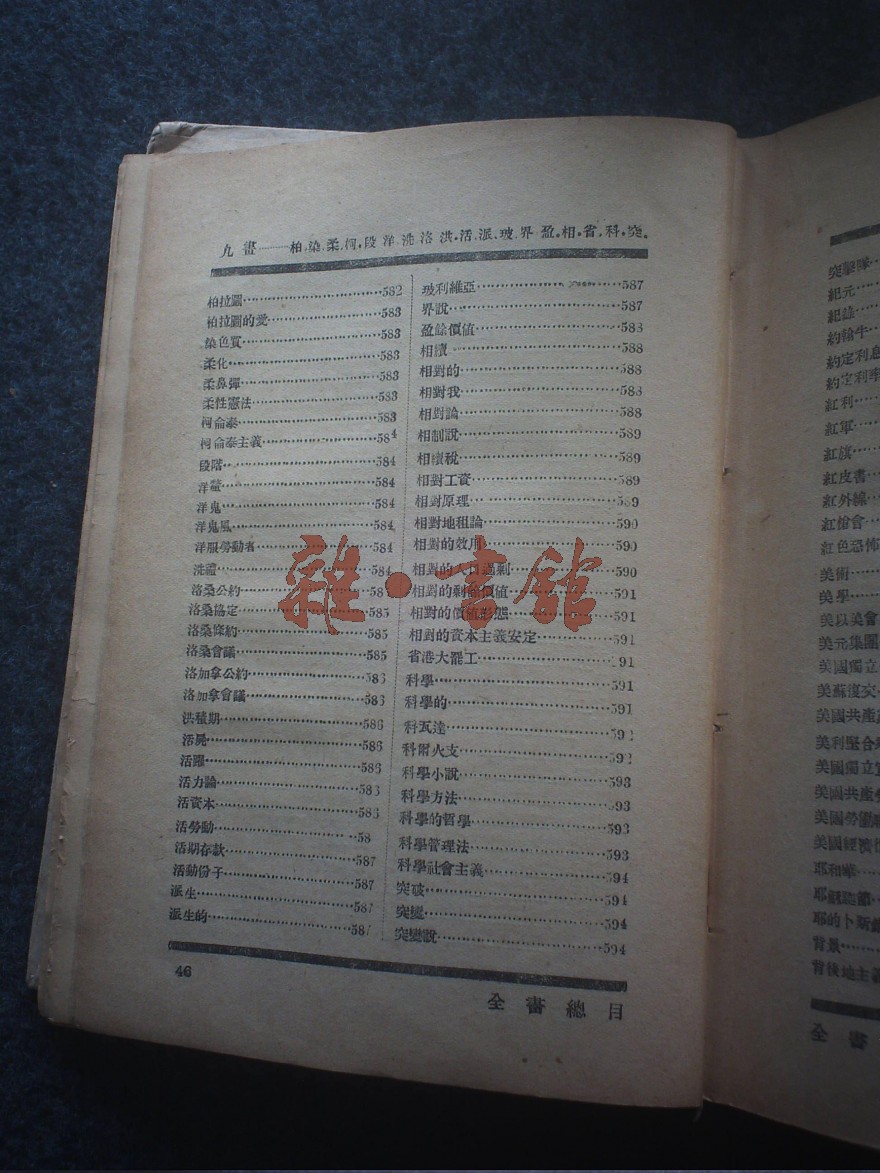 九畫——柏.染.柔.柯.段.洋.洗.洛.洪.活.派.玻.界.盈.相.省.科.突.
柏拉圖……582
柏拉圖的愛……583
染色質……583
柔化……583
柔鼻彈……583
柔性憲法……583
柯侖泰……583
柯侖泰主義……584
段階……584
洋盤……584
洋鬼……584
洋鬼風……584
洋服勞動者……584
洗禮……584
洛桑公約……58
洛桑協定……585
洛桑條約……585
洛桑會議……585
洛加拿公約……586
洛加拿會議……586
洪積期……586
活屍……586
活躍……586
活力論……586
活資本……586
活勞動……58
活期存款……587
活動份子……587
派生……587
派生的……587
玻利維亞……587
界說……587
盈餘價值……588
相續……588
相對的……588
相對我……588
相對論……588
相制說……589
相續稅……589
相對工資……589
相對原理……589
相對地租論……590
相對的效用……590
相對的人口過剩……590
相對的剩餘價值……591
相對的價值形態……591
相對的資本主義安定……591
省港大罷工……91
科學……591
科學的……591
科瓦達……592
科爾火支……592
科學小說……593
科學方法……593
科學的哲學……593
科學管理法……593
科學社會主義……594
突破……594
突變……594
突變說……594
46
全書總目
雜·書館
突擊隊
紀元
紀錄
約翰牛
約定利息
約定利率
紅利
紅軍
紅旗
紅皮書
紅外線
紅槍會
紅色恐怖
美術
美學
美以美會
美元集團
美國獨立
美蘇復交
美國共產
美利堅合
美國獨立宣
美國共產
美國勞
美國經濟
耶和華
耶穌
耶的卜斯
背景
背後地主
全書